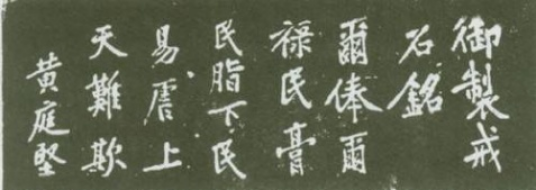 御製戒
石銘
爾俸爾
禄民膏
民脂下民
易虐上
天難欺
黄庭堅